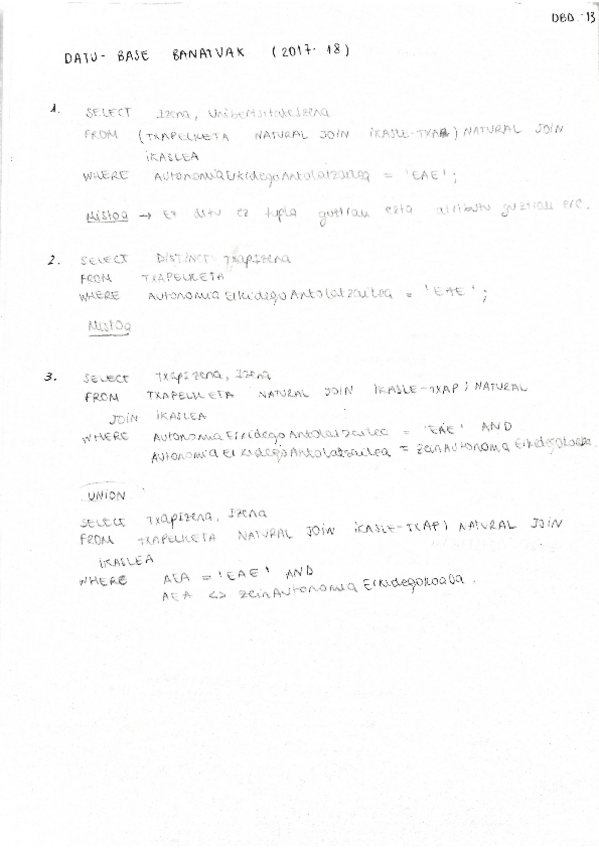 DBD-13
DATU-BASE BANATUAK (2017-18)
1. SELECT Izena, UnibertsitateIzena
FROM (TXAPELKETA NATURAL JOIN IKASLE-TXAP) NATURAL JOIN
IKASLEA
WHERE AutonomiaErkidegoAntolatzailea = 'EAE';
Mistoa → Ez ditu ez tupla guztiak ezta atributu guztiak ere.
2. SELECT DISTINCT TxapIzena
FROM TXAPELKETA
WHERE AutonomiaErkidegoAntolatzailea = 'EAE';
Mistoa
3. SELECT TxapIzena, Izena
FROM TXAPELKETA NATURAL JOIN IKASLE-TXAP) NATURAL
JOIN IKASLEA
WHERE AutonomiaErkidegoAntolatzailea = 'EAE' AND
AutonomiaErkidegoAntolatzailea = zeinAutonomiaErkidegokoaba.
UNION
SELECT TxapIzena, Izena
FROM TXAPELKETA NATURAL JOIN IKASLE-TXAP) NATURAL JOIN
IKASLEA
WHERE AEA = 'EAE' AND
AEA <> zeinAutonomiaErkidegokoaba.